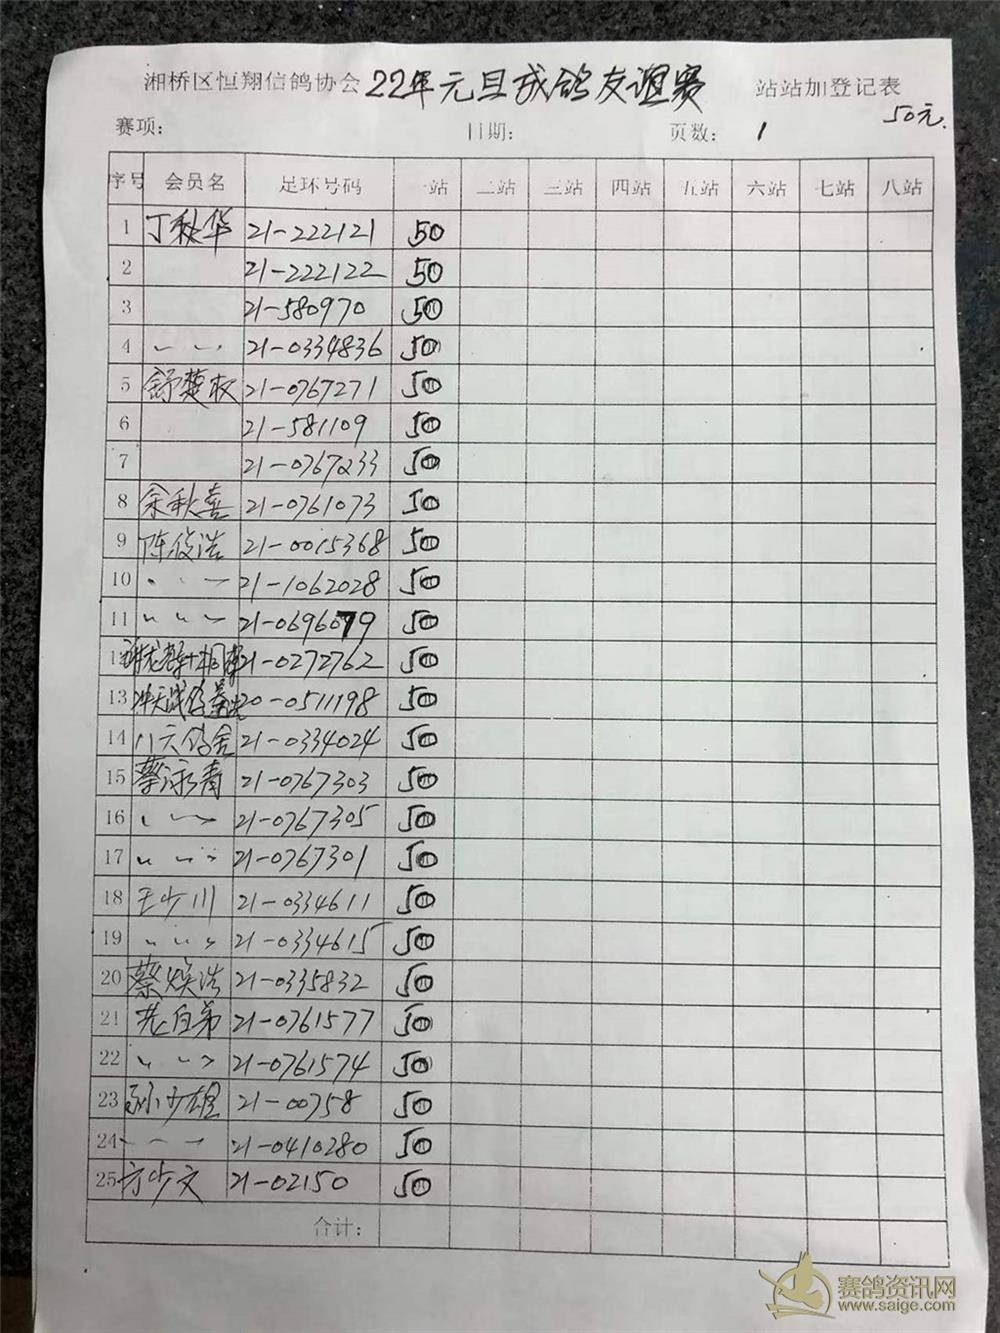 湘桥区恒翔信鸽协会 22年元旦成鸽友谊赛 站站加登记表
50元.
赛项: 日期: 页数: 1
序号 会员名 足环号码 一站 二站 三站 四站 五站 六站 七站 八站
1 丁秋华 21-222121 50
2 21-222122 50
3 21-580970 50
4 〃 〃 21-0334836 50
5 舒楚权 21-0767271 50
6 21-581109 50
7 21-0767233 50
8 余秋喜 21-0761073 50
9 陈俊浩 21-0015368 50
10 〃 〃 21-1062028 50
11 〃 〃 21-0696079 50
12 21-0272762 50
13 20-0511198 50
14 八六鸽舍 21-0334024 50
15 蔡泳青 21-0767303 50
16 〃 〃 21-0767305 50
17 〃 〃 21-0767301 50
18 王少川 21-0334611 50
19 〃 〃 21-0334615 50
20 蔡焕浩 21-0335832 50
21 21-0761577 50
22 〃 〃 21-0761574 50
23 孙少雄 21-00758 50
24 〃 〃 21-0410280 50
25 方少文 21-02150 50
合计:
赛鸽资讯网
www.saige.com